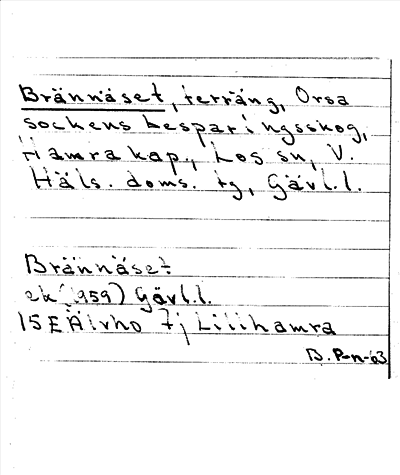 Brännäset, terräng, Orsa
sockens besparingsskog,
Hamra kap., Los sn, V.
Häls. doms. tg, Gävl.l.
Brännäset
ek (1959) Gävl.l.
15E Älvho 7j Lillhamra
B. P-n-63